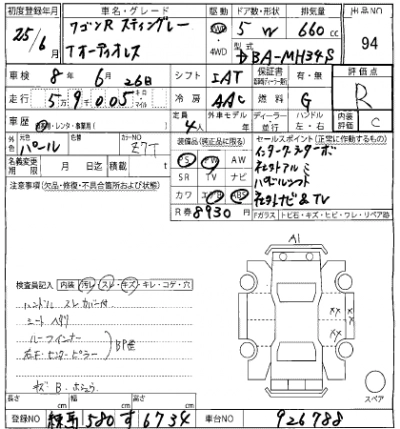 初度登録年月 車名・グレード 駆動 ドア数・形状 排気量 出品NO
25/6月 ワゴンR スティングレー 2WD 4WD 5 W 660cc 94
Tオーディオレス 型式 DBA-MH34S
車検 8年 6月 26日 シフト IAT 保証書 有・無 評価点
走行 5万9千005 キロ マイル 冷房 AAC 燃料 G R
車歴 自家用・レンタ・教習用( ) 定員 4人 外車モデル 年式 ディーラー 並行 ハンドル 左・右 内装評価 C
外色 パール 元色 カラーNO Z7T 装備品(純正品に限る) セールスポイント(正常に作動するもの)
名義変更期限 月 日迄 積載 t PS PW AW インタークーラーターボ
注意事項(欠品・修復・不具合箇所および状態) SR TV ナビ 社外アルミ
カワ エアB ABS パドルシフト
R券 8930円 社外ナビ&TV
Fガラス トビ石・キズ・ヒビ・ワレ・リペア跡
A1
検査員記入 内装 汚レ・スレ・キズ・キレ・コゲ・穴
ハンドル スレ カバー付
シート ヘタリ
ルーフインナー
右下・センターピラー
キズ B
長さ cm 幅 cm 高さ cm
スペア
登録NO 練馬 580 す 6734 車台NO 926788